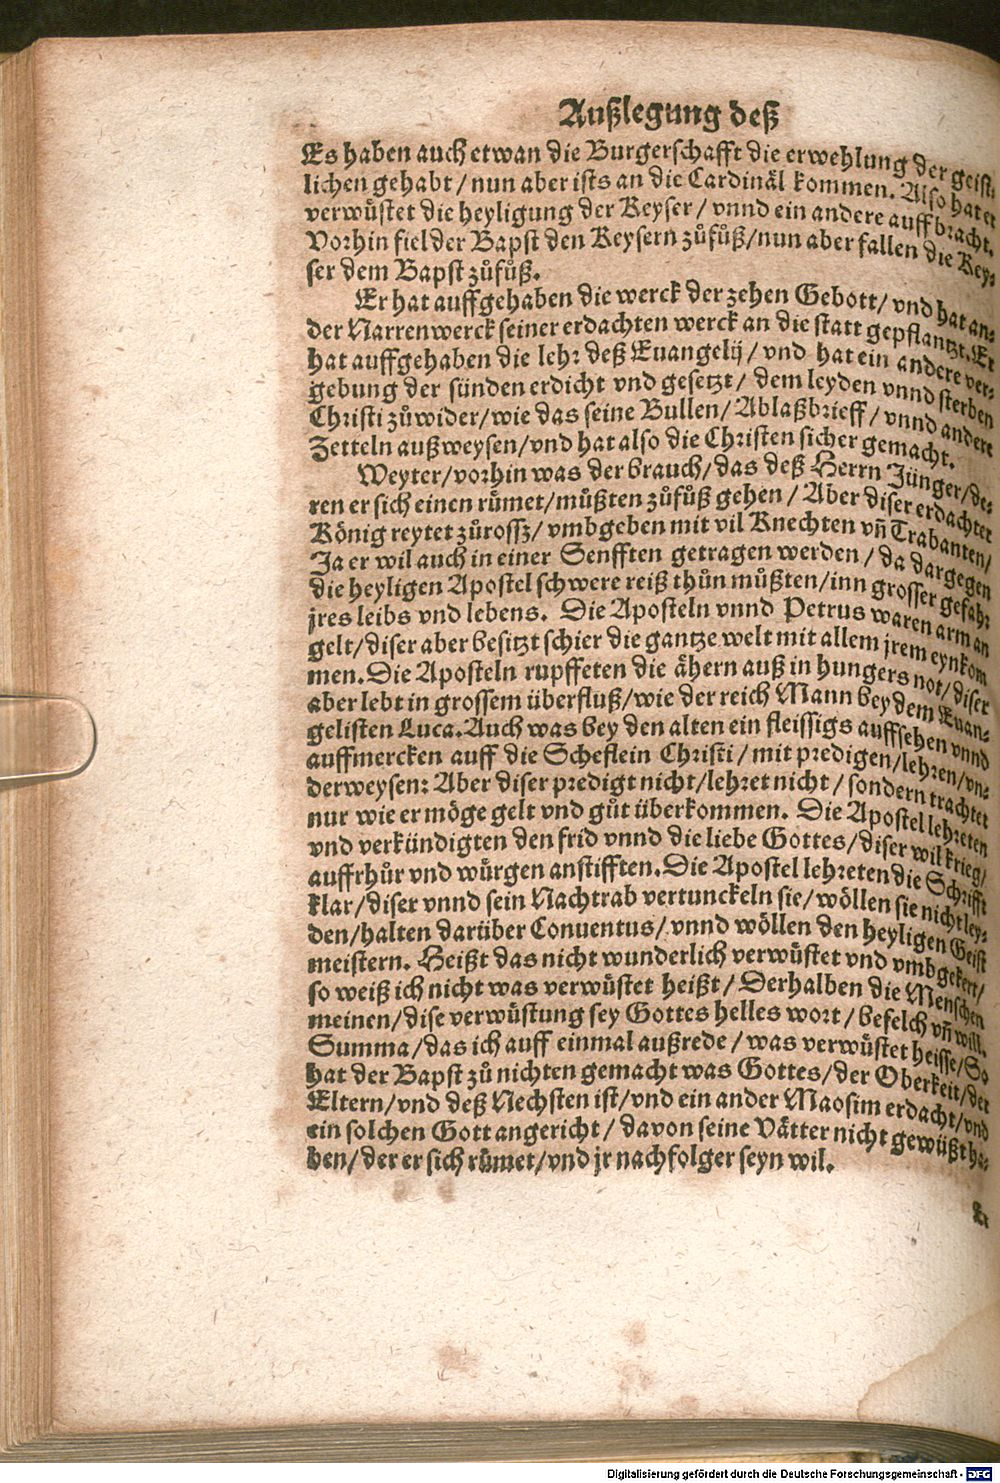 Außlegung deß
Es haben auch etwan die Burgerschafft die erwehlung der geist-
lichen gehabt / nun aber ists an die Cardinäl kommen. Also hat er
verwüstet die heyligung der Keyser / vnnd ein andere auffbracht.
Vorhin fiel der Bapst den Keysern zůfůß / nun aber fallen die Key-
ser dem Bapst zůfůß.
Er hat auffgehaben die werck der zehen Gebott / vnd hat an-
der Narrenwerck seiner erdachten werck an die statt gepflantzt. Er
hat auffgehaben die lehr deß Euangelij / vnd hat ein andere ver-
gebung der sünden erdicht vnd gesetzt / dem leyden vnnd sterben
Christi zůwider / wie das seine Bullen / Ablaßbrieff / vnnd andere
Zetteln außweysen / vnd hat also die Christen sicher gemacht.
Weyter / vorhin was der brauch / das deß Herrn Jünger / de-
ren er sich einen rümet / müßten zůfůß gehen / Aber diser erdachter
König reytet zůrossz / vmbgeben mit vil Knechten vñ Trabanten /
Ja er wil auch in einer Senfften getragen werden / da dargegen
die heyligen Apostel schwere reiß thůn müßten / inn grosser gefahr
jres leibs vnd lebens. Die Aposteln vnnd Petrus waren arm an
gelt / diser aber besitzt schier die gantze welt mit allem jrem eynkom
men. Die Aposteln rupffeten die ähern auß in hungers not / diser
aber lebt in grossem überfluß / wie der reich Mann bey dem Euan-
gelisten Luca. Auch was bey den alten ein fleissigs auffsehen vnnd
auffmercken auff die Scheflein Christi / mit predigen / lehren / vn-
derweysen: Aber diser predigt nicht / lehret nicht / sondern trachtet
nur wie er möge gelt vnd gůt überkommen. Die Apostel lehreten
vnd verkündigten den frid vnnd die liebe Gottes / diser wil krieg /
auffrhůr vnd würgen anstifften. Die Apostel lehreten die Schrifft
klar / diser vnnd sein Nachtrab vertunckeln sie / wöllen sie nicht ley-
den / halten darüber Conuentus / vnnd wöllen den heyligen Geist
meistern. Heißt das nicht wunderlich verwüstet vnd vmbgekert /
so weiß ich nicht was verwüstet heißt / Derhalben die Menschen
meinen / dise verwüstung sey Gottes helles wort / befelch vñ will.
Summa / das ich auff einmal außrede / was verwüstet heisse / So
hat der Bapst zů nichten gemacht was Gottes / der Oberkeit / der
Eltern / vnd deß Nechsten ist / vnd ein ander Maosim erdacht / vnd
ein solchen Gott angericht / davon seine Vätter nicht gewüßt ha-
ben / der er sich rümet / vnd jr nachfolger seyn wil.
Er
Digitalisierung gefördert durch die Deutsche Forschungsgemeinschaft - DFG